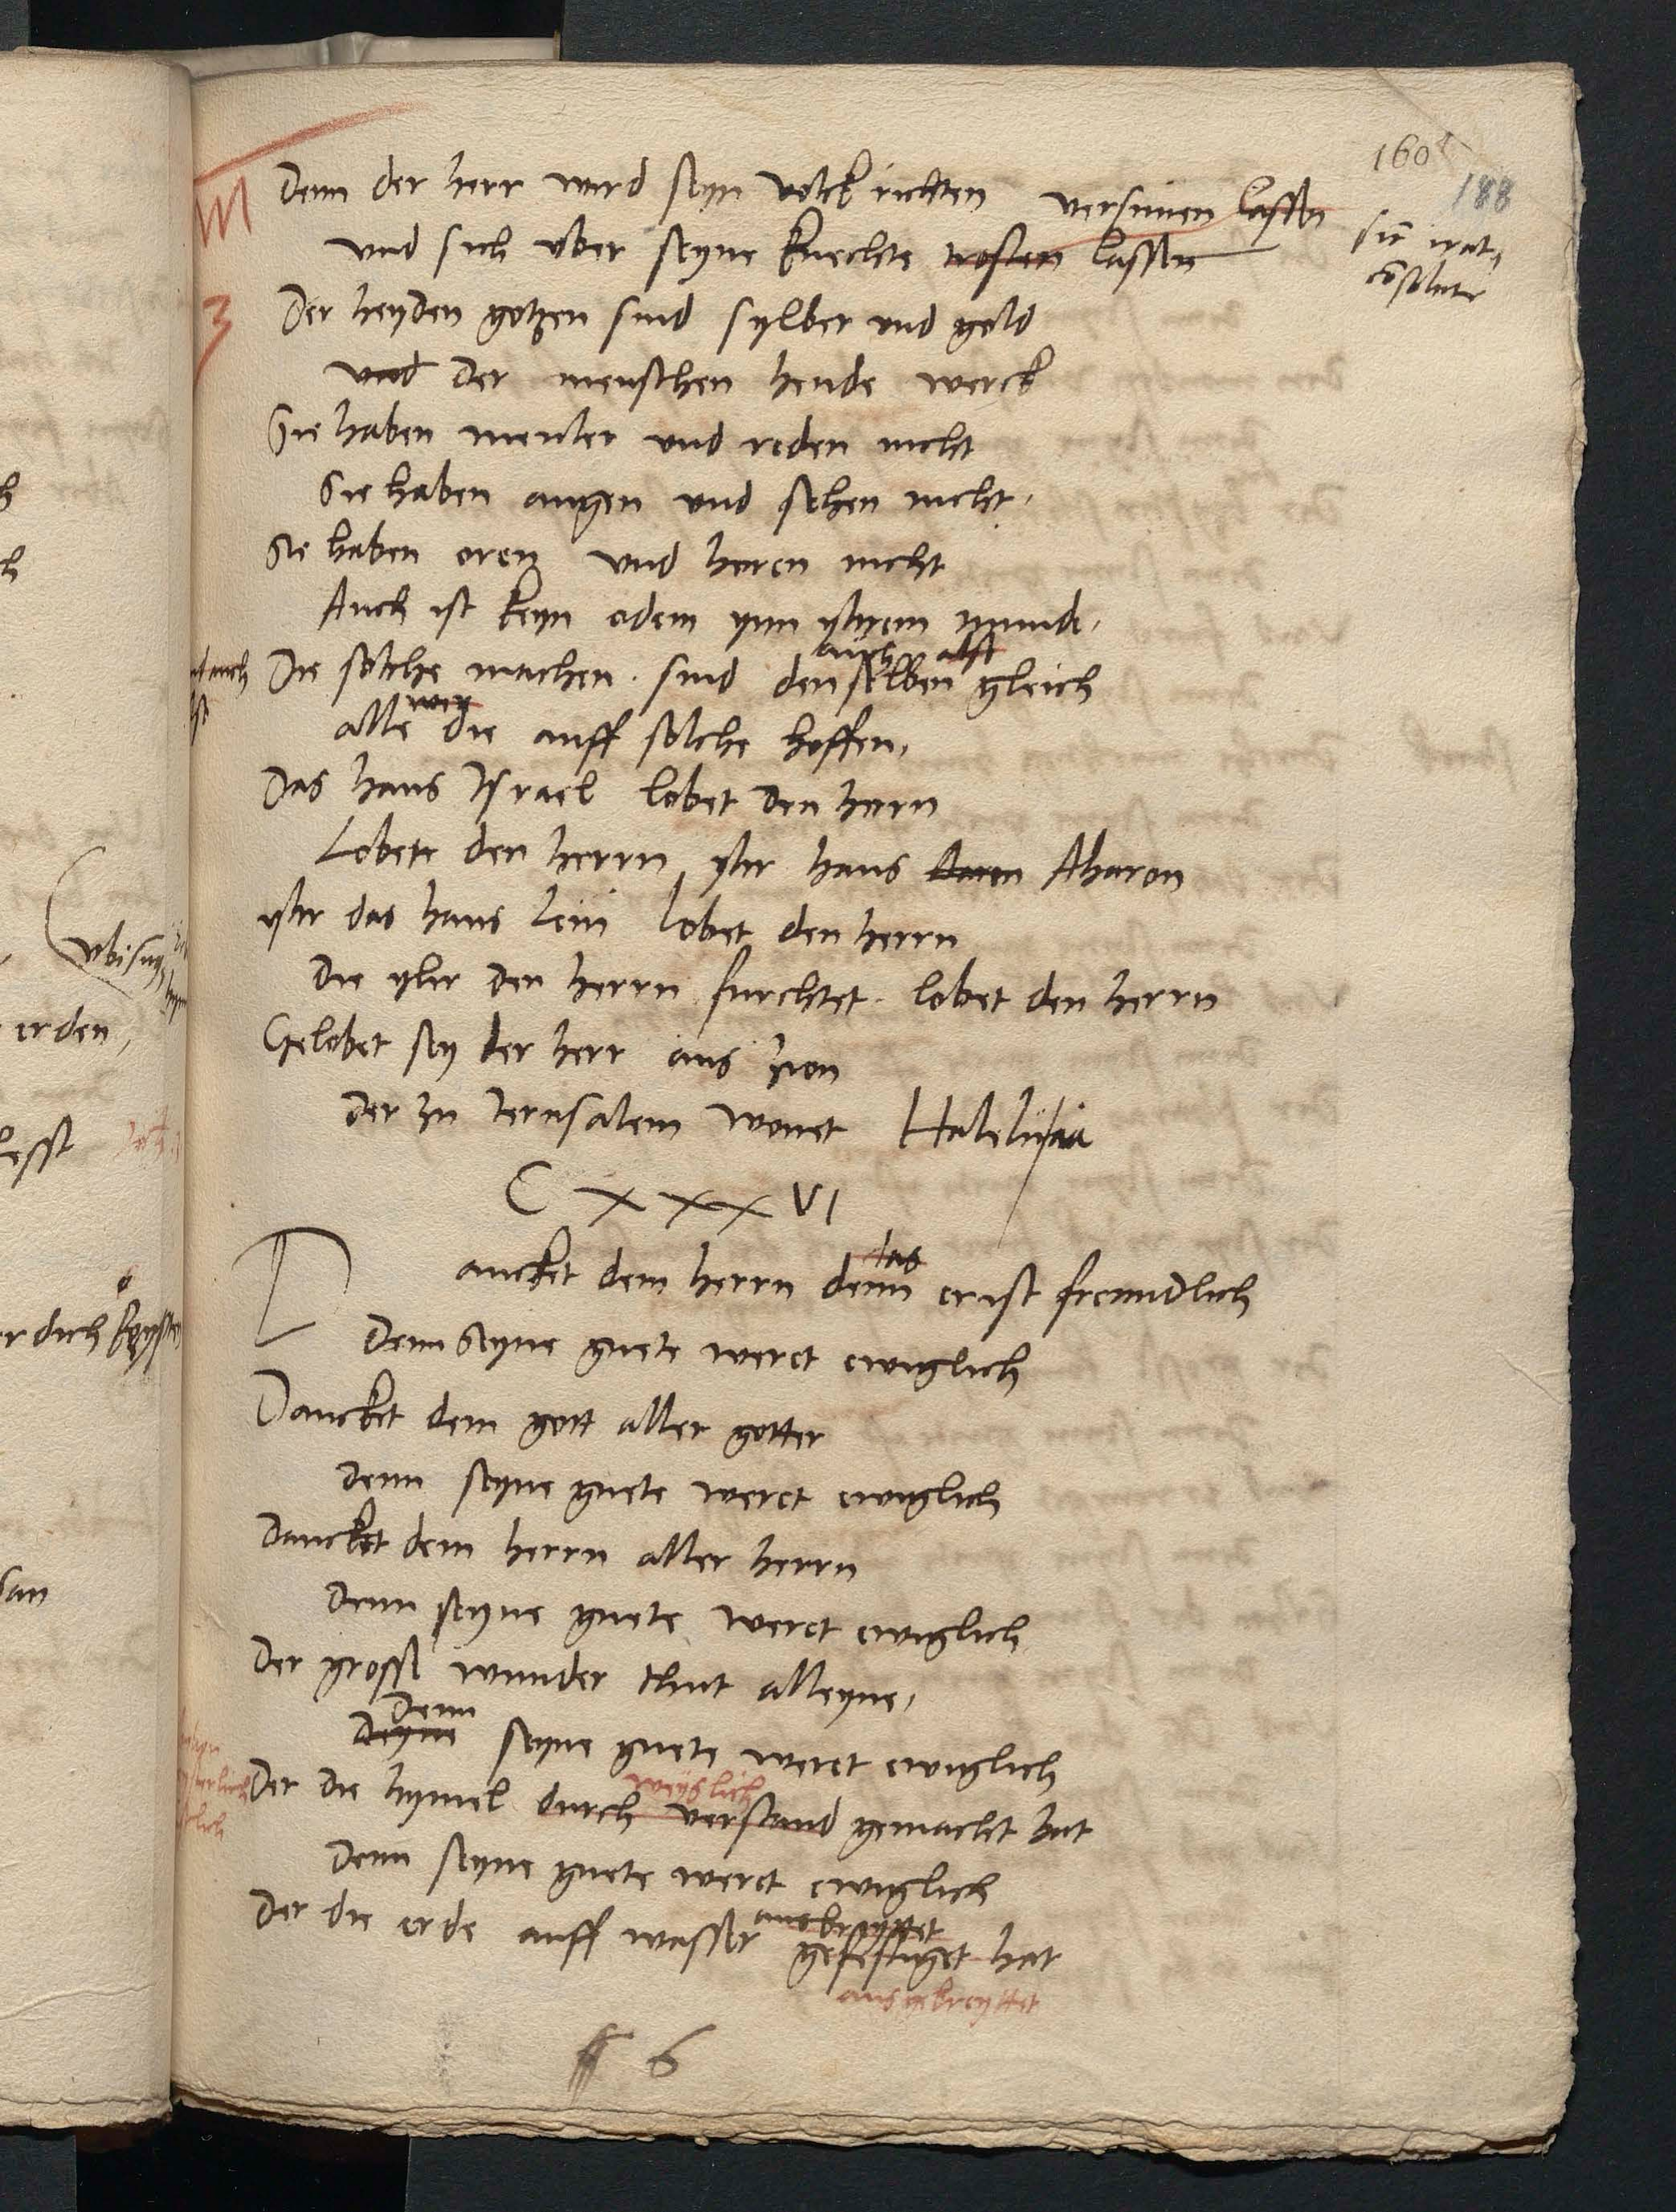 160
188
Denn der herr wird seyn volck richten versunen lassen
sic irat,
cōsolatr
und sich uber seyne knechte trosten lassen
Der heyden gotzen sind sylber und gold
und der menschen hende werck
Sie haben meuler und reden nicht
Sie haben augen und sehen nicht.
Sie haben oren und horen nicht
Auch ist keyn odem ynn yhrem munde.
auch alsso
Die solche machen. sind denselben gleich
alle die auff solche hoffen.
Das haus Israel lobet den herrn
Lobete den herrn yhr haus Aaron Aharon
yhr das haus Levi lobet den herrn
die yhr den herrn furchtet. lobet den herrn
Gelobet sey der herr aus zion
der zu Jerusalem wonet Haleluia
C XXX VI
das
Dancket dem herrn denn er ist freundlich
Denn seyne guete weret ewiglich
Dancket dem gott aller gotter
denn seyne guete weret ewiglich
Dancket dem herrn aller herrn
denn seyne guete weret ewiglich
Der grosse wunder thut alleyne,
Denn
Deyne seyne guete weret ewiglich
weyslich
Der die hymel durch verstand gemacht hat
Denn seyne guete weret ewiglich
ausbreyttet
Der die erde auff wasser gefestiget hat
ausgebreyttet
6